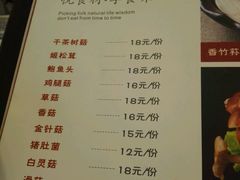 Picking folk natural life wisdom
don't eat from time to time
干茶树菇 18元/份
姬松茸 18元/份
鲍鱼头 18元/份
鸡腿菇 16元/份
草菇 18元/份
香菇 16元/份
金针菇 15元/份
猪肚菌 12元/份
白灵菇 18元/份
滑菇
香竹荪